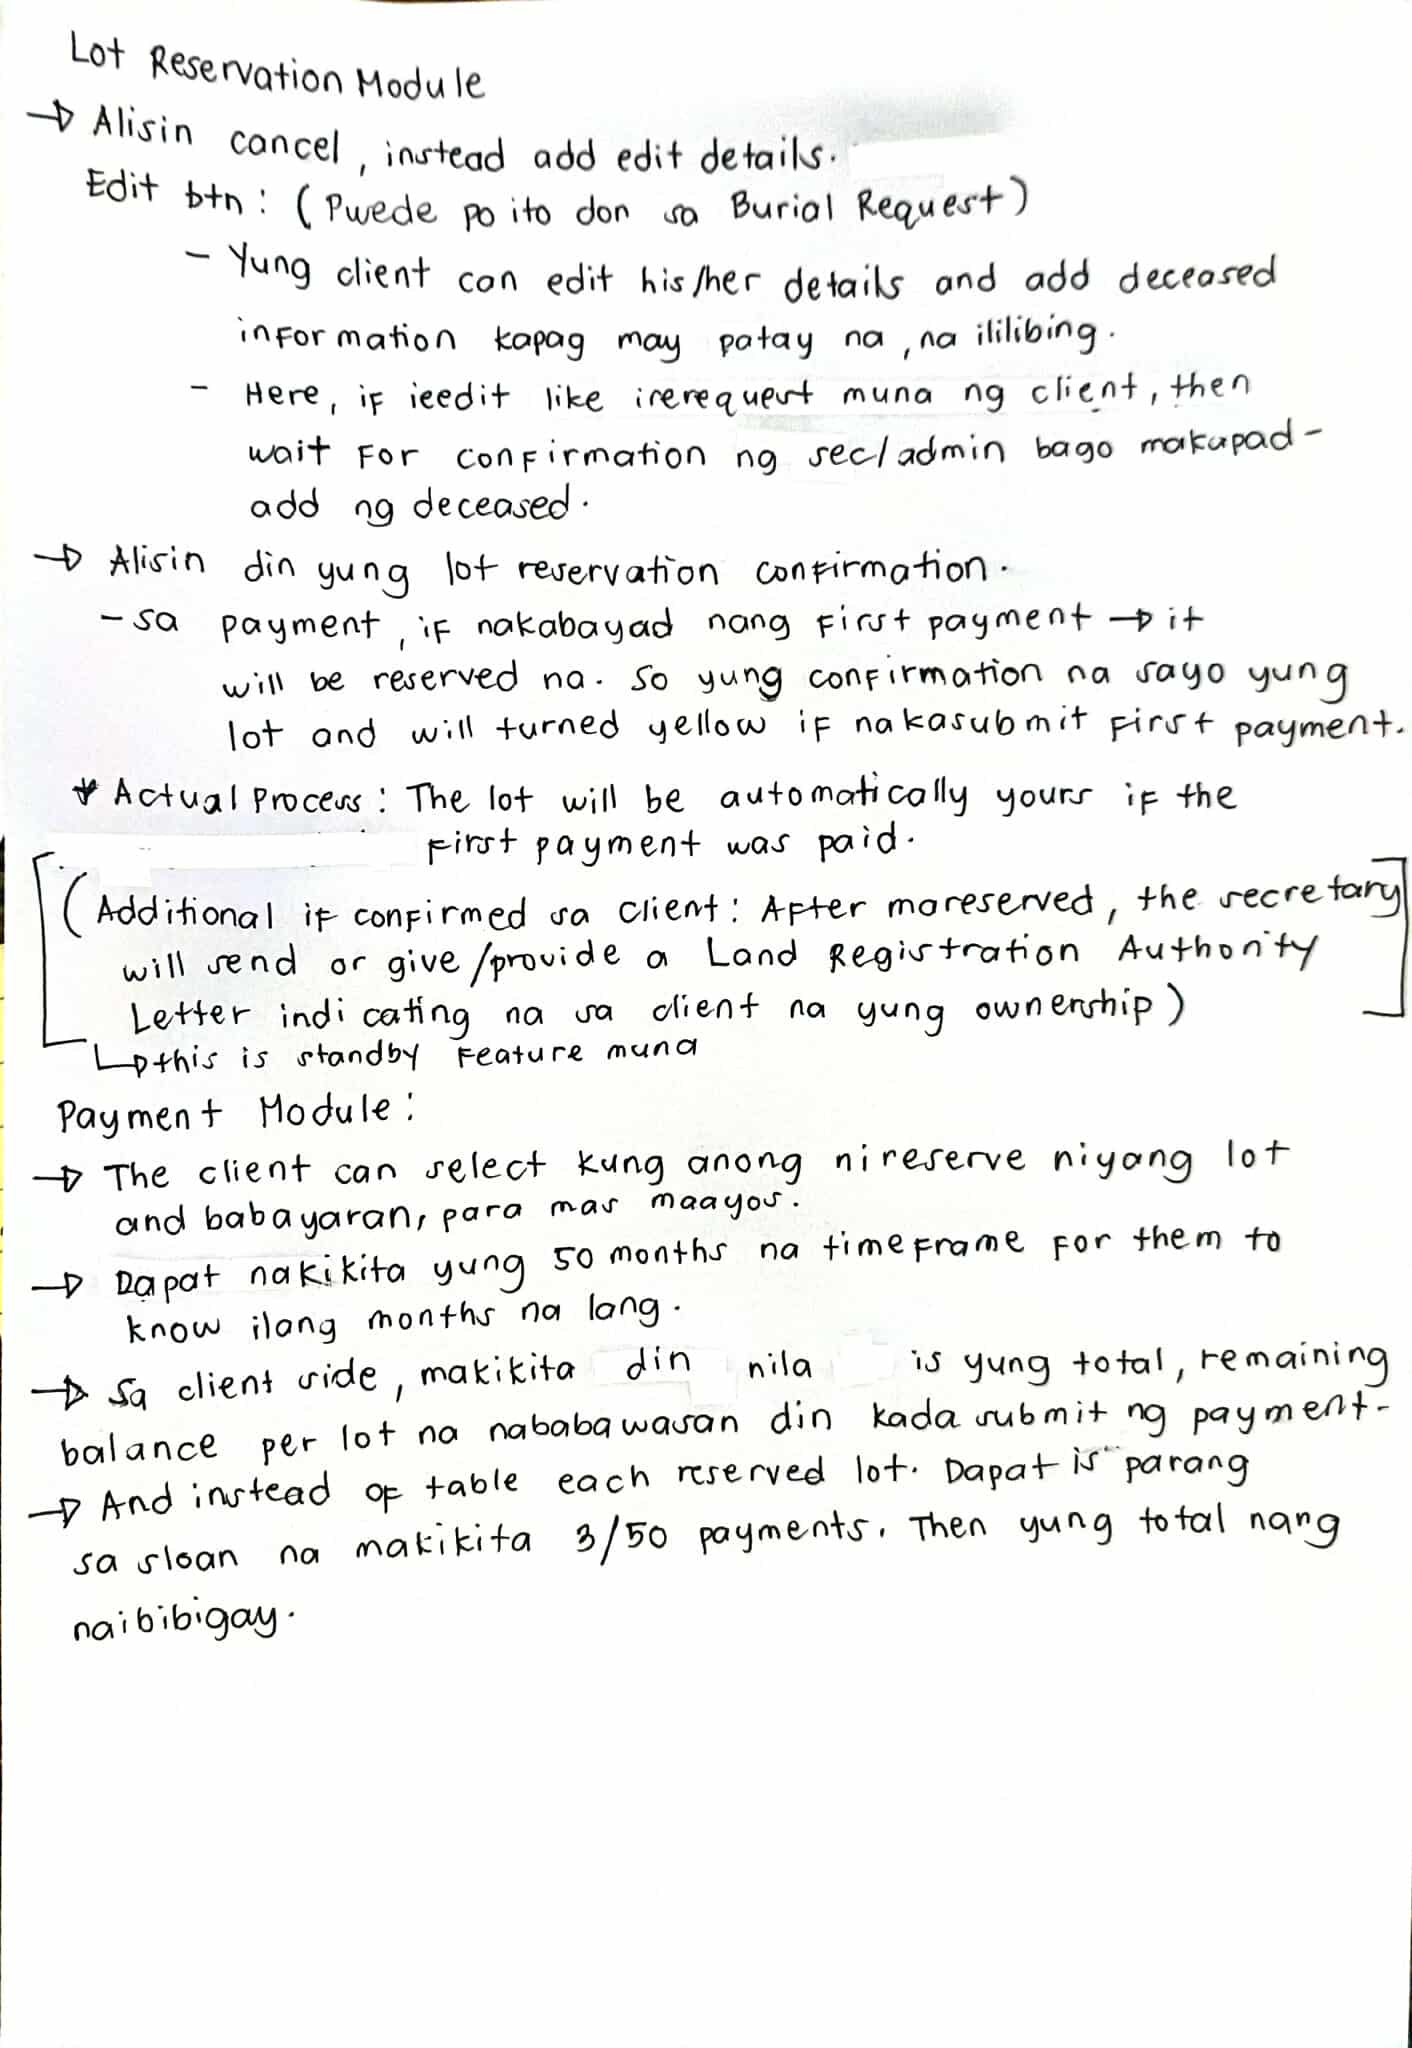 Lot Reservation Module
→ Alisin cancel, instead add edit details.
Edit btn: (Pwede po ito don sa Burial Request)
- Yung client can edit his/her details and add deceased
information kapag may patay na, na ililibing.
- Here, if ieedit like irerequest muna ng client, then
wait for confirmation ng sec/admin bago makapad-
add ng deceased.
→ Alisin din yung lot reservation confirmation.
- sa payment, if nakabayad nang first payment → it
will be reserved na. So yung confirmation na sayo yung
lot and will turned yellow if nakasubmit first payment.
* Actual Process: The lot will be automatically yours if the
first payment was paid.
(Additional if confirmed sa client: After mareserved, the secretary
will send or give/provide a Land Registration Authority
Letter indicating na sa client na yung ownership)
↳ this is standby feature muna
Payment Module:
→ The client can select kung anong nireserve niyang lot
and babayaran, para mas maayos.
→ Dapat nakikita yung 50 months na timeframe for them to
know ilang months na lang.
→ Sa client side, makikita din nila is yung total, remaining
balance per lot na nababawasan din kada submit ng payment.
→ And instead of table each reserved lot. Dapat is parang
sa sloan na makikita 3/50 payments. Then yung total nang
naibibigay.